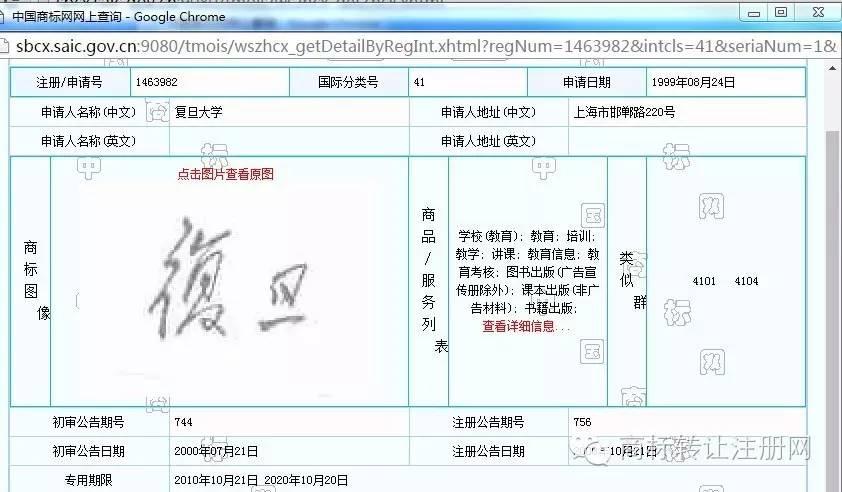 中国商标网网上查询 - Google Chrome
sbcx.saic.gov.cn:9080/tmois/wszhcx_getDetailByRegInt.xhtml?regNum=1463982&intcls=41&seriaNum=1&
注册/申请号 1463982 国际分类号 41 申请日期 1999年08月24日
申请人名称(中文) 复旦大学 申请人地址(中文) 上海市邯郸路220号
申请人名称(英文) 申请人地址(英文)
商标图像
点击图片查看原图
復旦
商品/服务列表
学校(教育); 教育; 培训;
教学; 讲课; 教育信息; 教
育考核; 图书出版(广告宣
传册除外); 课本出版(非广
告材料); 书籍出版;
查看详细信息...
类似群
4101 4104
初审公告期号 744 注册公告期号 756
初审公告日期 2000年07月21日 注册公告日期 10月21日
专用期限 2010年10月21日 2020年10月20日
商标转让注册网